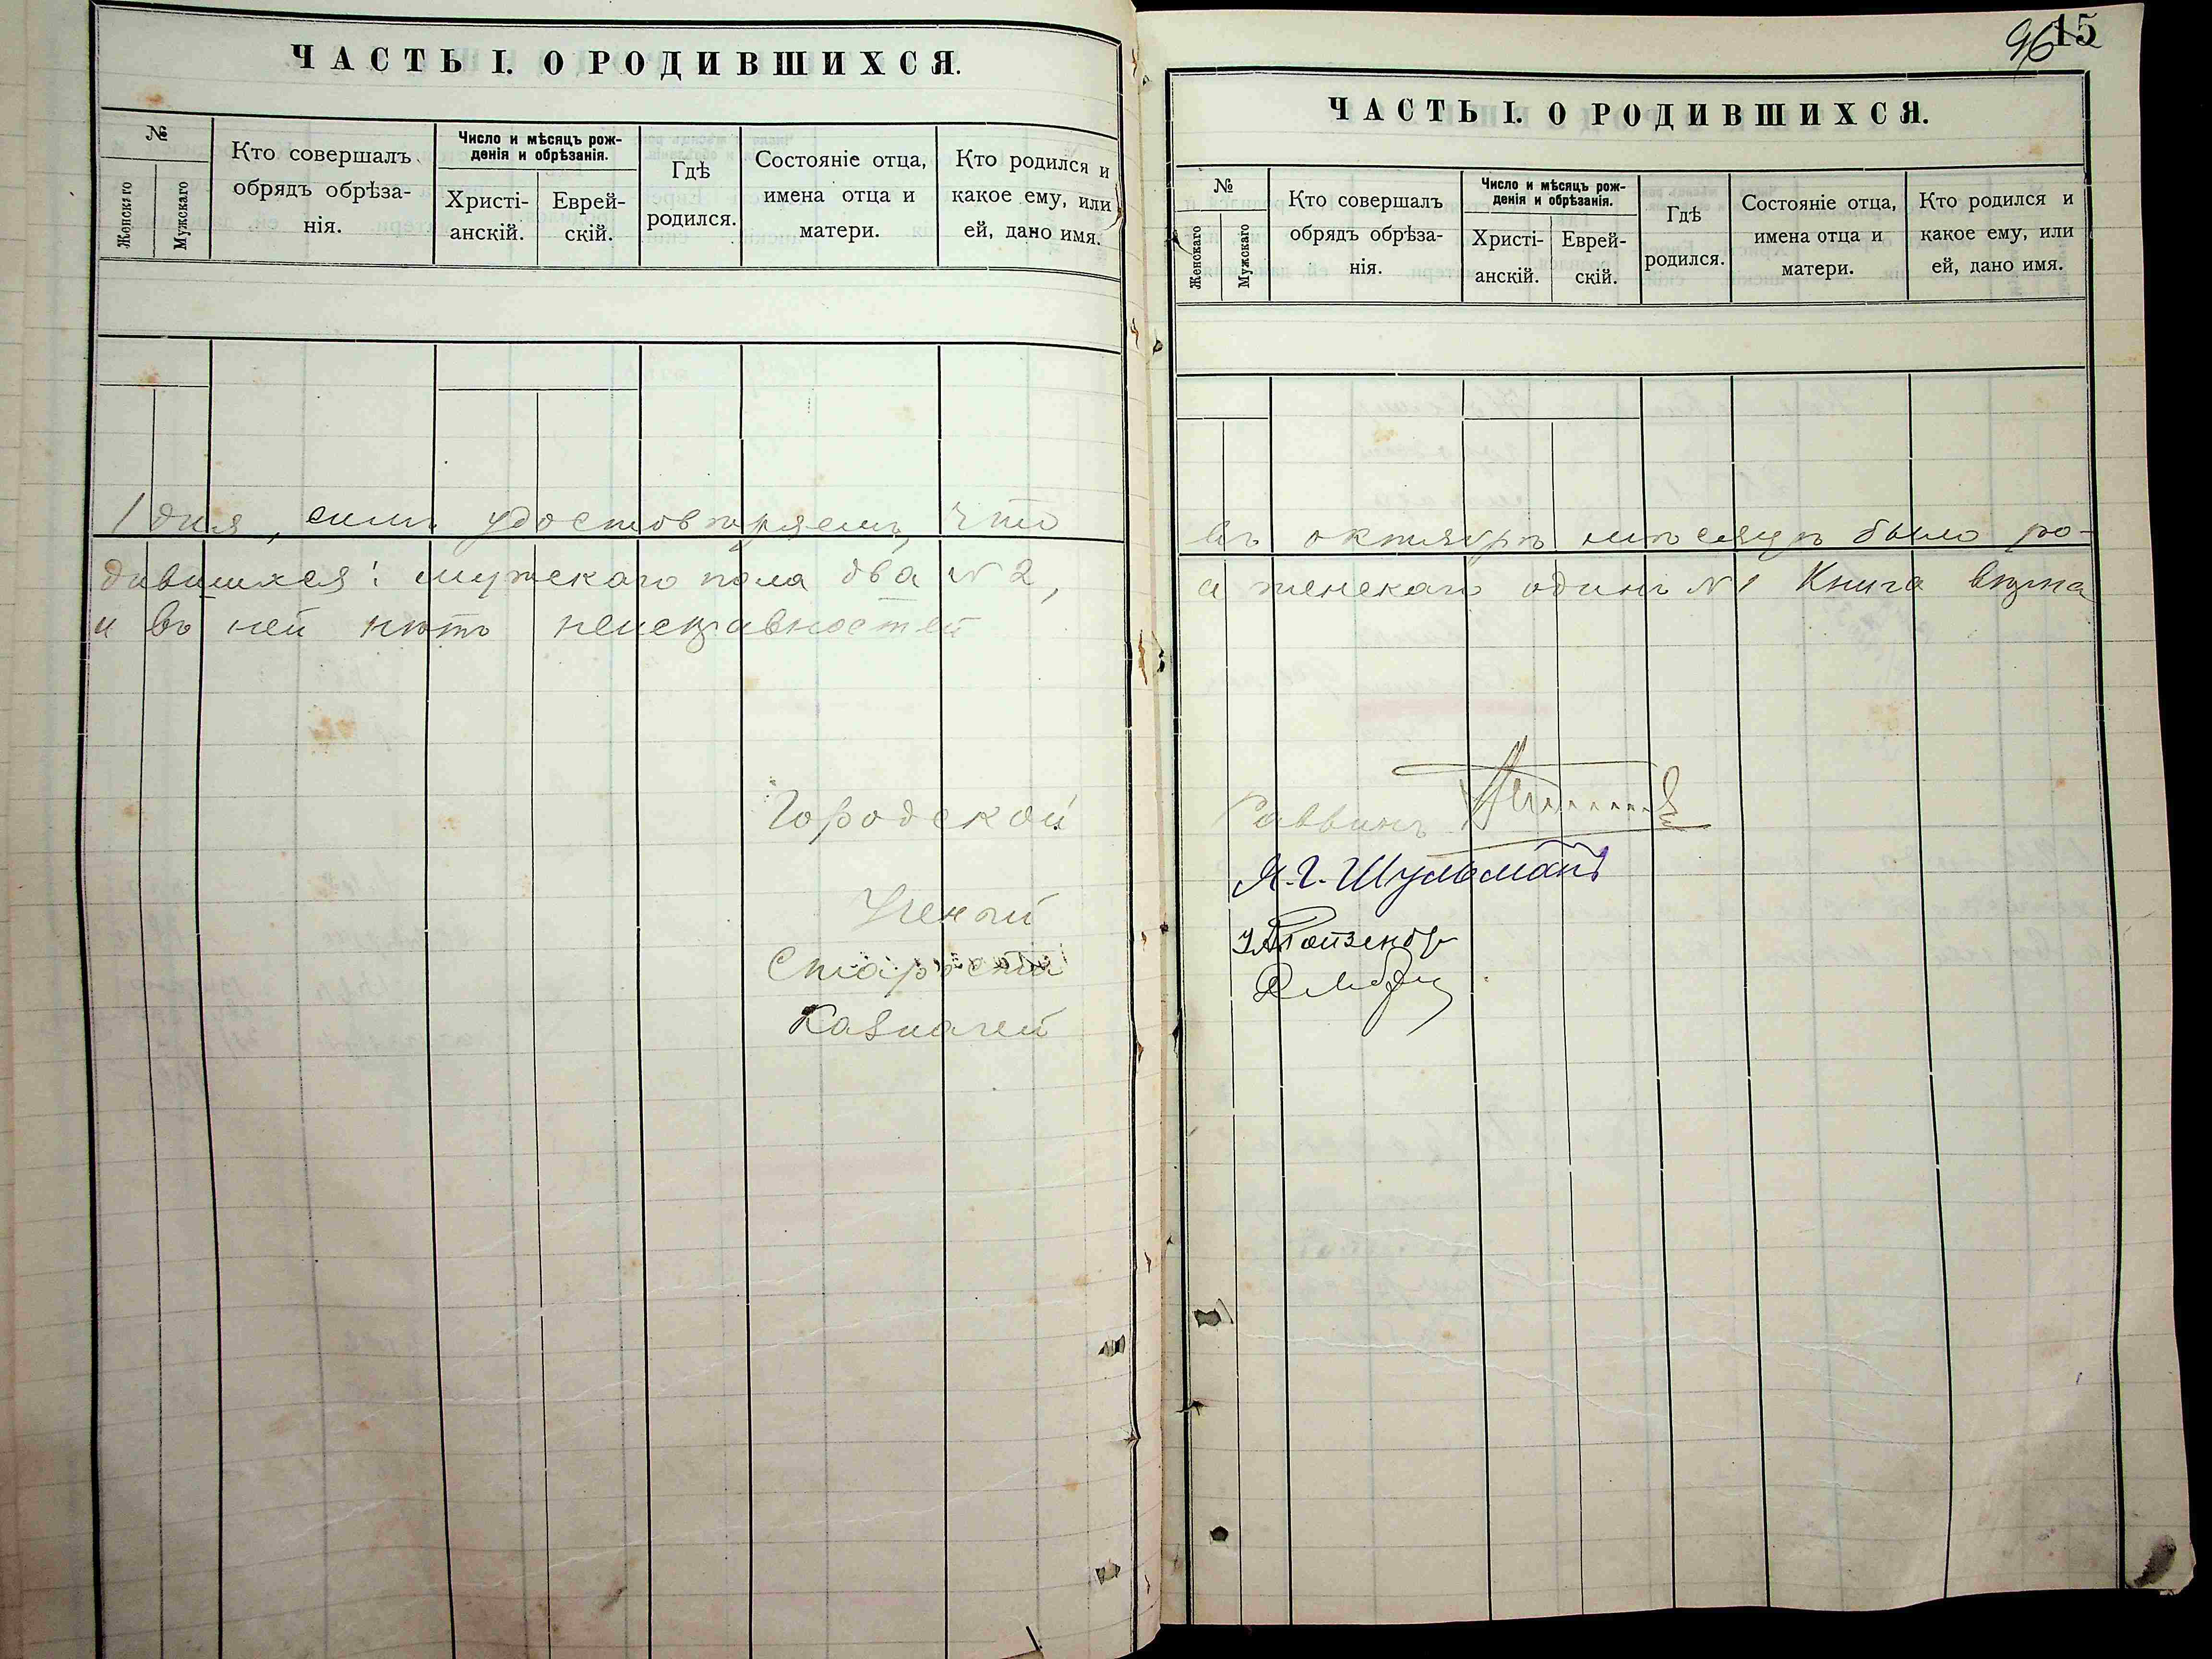 ЧАСТЬ I. О РОДИВШИХСЯ.
№
Женскаго
Мужскаго
Кто совершалъ
обрядъ обрѣза-
нія.
Число и мѣсяцъ рож-
денія и обрѣзанія.
Христі-
анскій.
Еврей-
скій.
Гдѣ
родился.
Состояніе отца,
имена отца и
матери.
Кто родился и
какое ему, или
ей, дано имя.
1 дня, симъ удостовѣряемъ, что
дившихся: мужскаго пола два № 2,
и въ ней нѣтъ неисправностей
Городской
Ученый
Староста
Казначей
96 15
ЧАСТЬ I. О РОДИВШИХСЯ.
№
Женскаго
Мужскаго
Кто совершалъ
обрядъ обрѣза-
нія.
Число и мѣсяцъ рож-
денія и обрѣзанія.
Христі-
анскій.
Еврей-
скій.
Гдѣ
родился.
Состояніе отца,
имена отца и
матери.
Кто родился и
какое ему, или
ей, дано имя.
въ октябрѣ мѣсяцѣ было ро-
а женскаго одинъ № 1 Книга
Раввинъ
Я. Г. Шульманъ